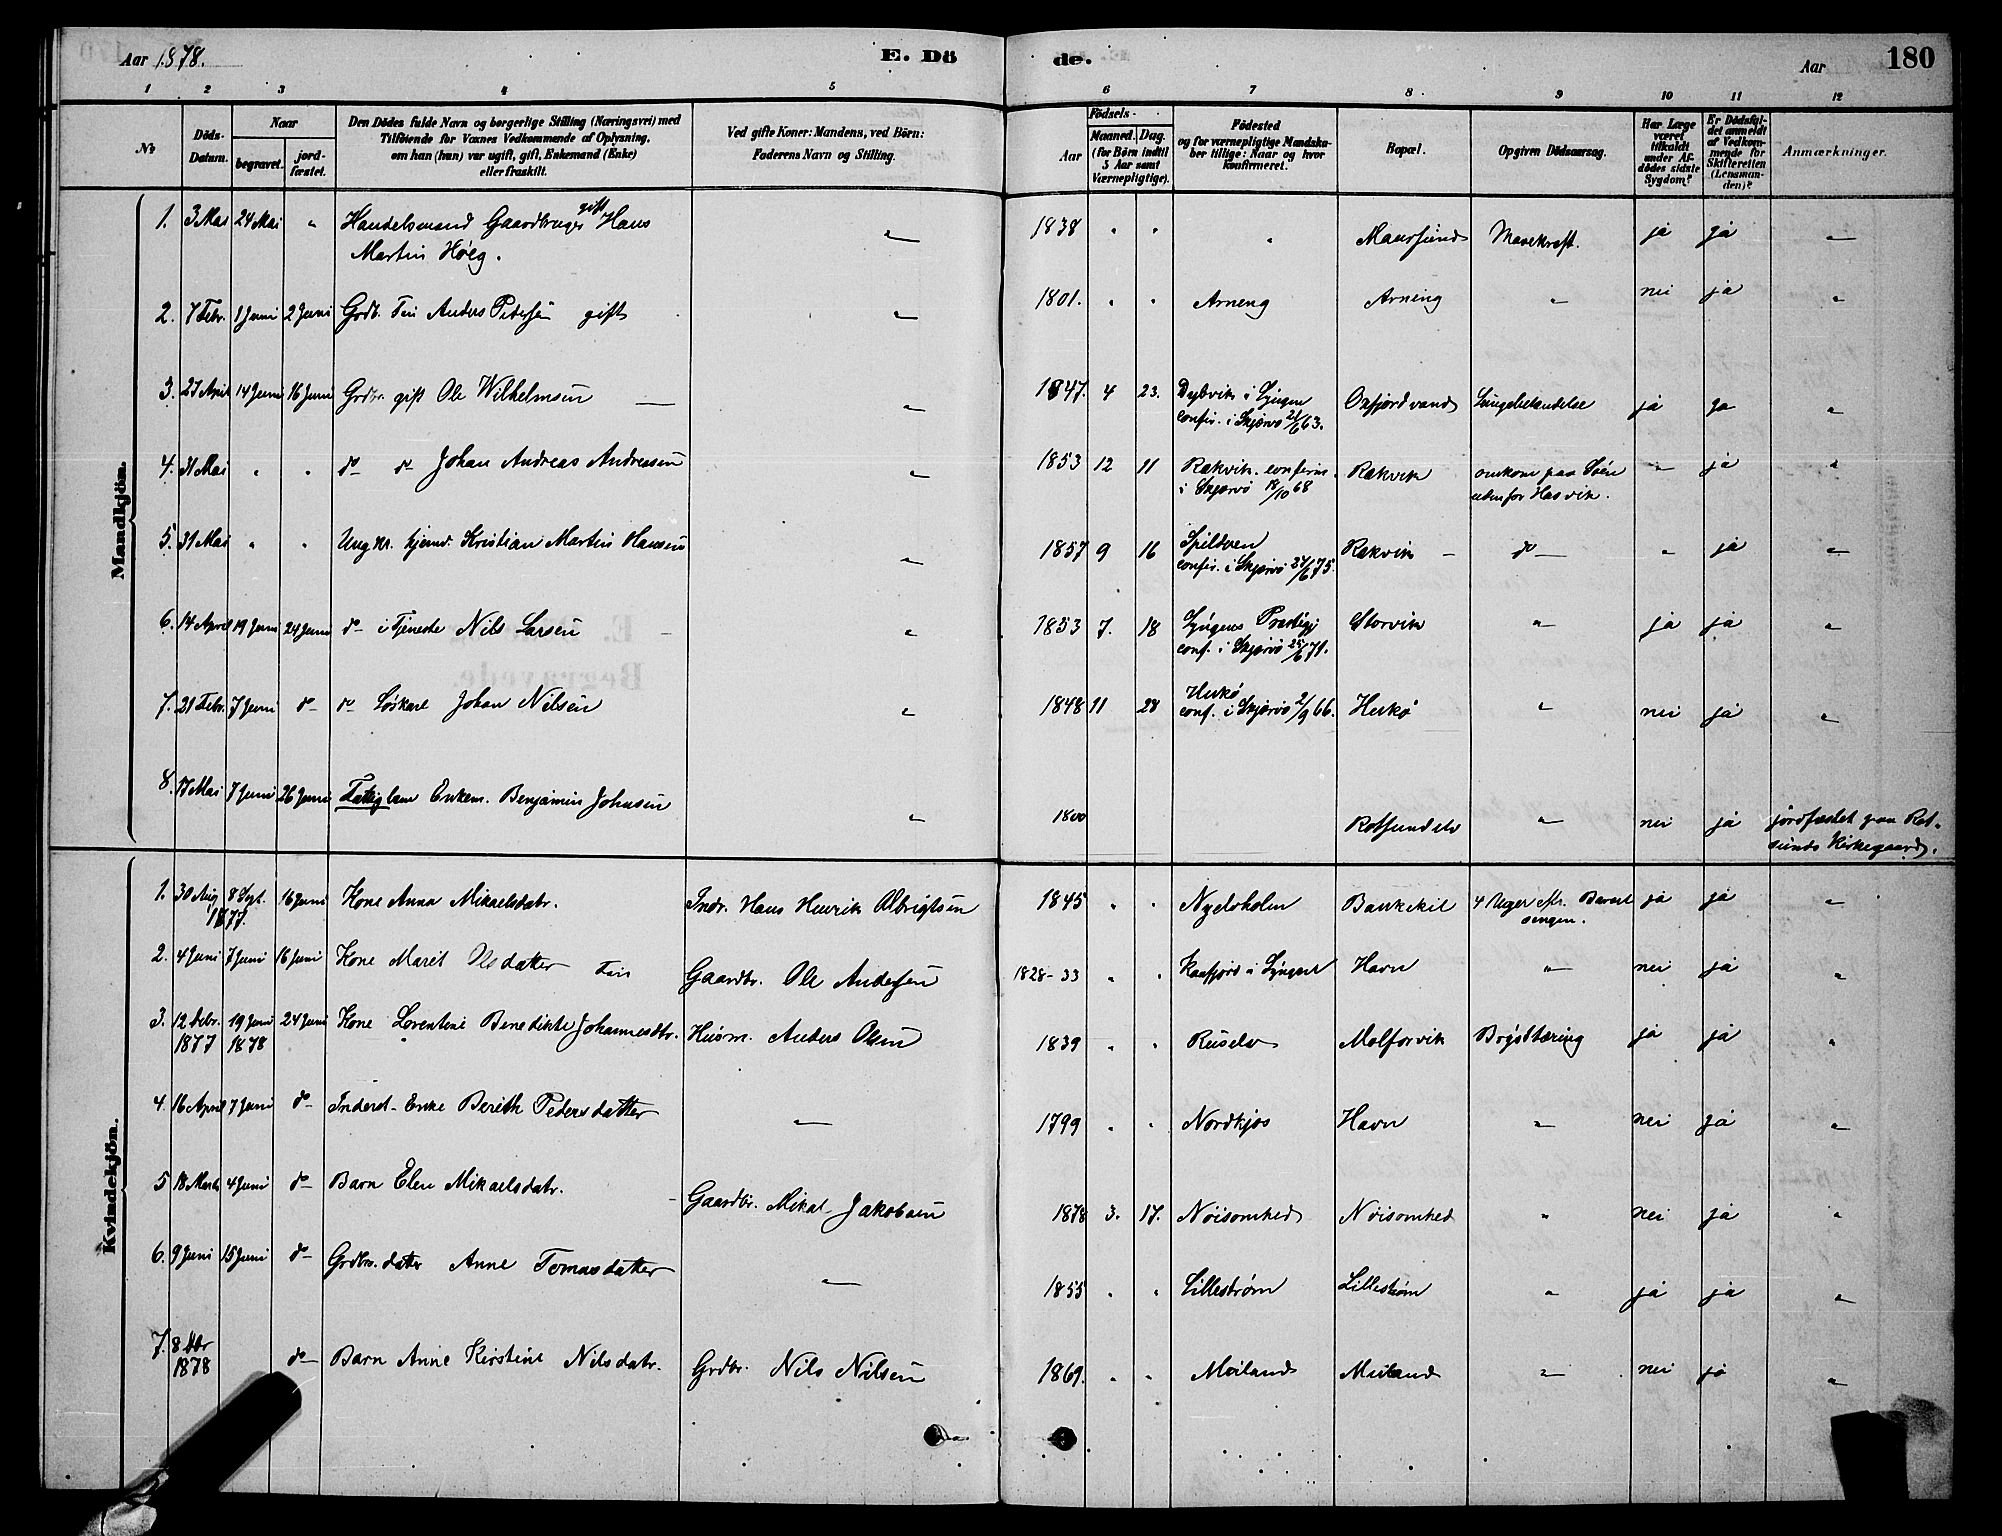 Aar 1878. E. Dö de. Aar 180
1 2 3 4 5 6 7 8. 9 10 11 12
No Döds-Datum. Naar begravet. jordfæstet. Den Dödes fulde Navn og borgerlige Stilling (Næringsvei) med Tilföiende for Voxnes Vedkommende af Oplysning, om han (hun) var ugift, gift, Enkemand (Enke) eller fraskilt. Ved gifte Koner: Mandens, ved Börn: Faderens Navn og Stilling. Födsels- Aar Maaned. Dag. (for Börn indtil 5 Aar samt Værnepligtige). Födested og for værnepligtige Mandskaber tillige: Naar og hvor konfirmeret. Bopæl. Opgiven Dödsaarsag. Har Læge været tilkaldt under Afdödes sidste Sygdom? Er Dödsfaldet anmeldt af Vedkommende for Skifteretten (Lensmanden)? Anmærkninger.
Mandkjön.
1. 3 Mai 24 Mai " Handelsmand Gaardbruger gift Hans " 1838 " " " Maursund Mavekræft. ja ja "
Martin Höeg.
2. 7 Febr. 1 Juni 2 Juni Grdb. Fin Anders Peders̄en gift " 1801. " " Arneng Arneng " nei ja "
3. 27 April 14 Juni 16 Juni Grdbr. gift Ole Wilhelmsen " 1847. 4 23. Dybvik i Lyngen Oxfjordvand Lungebetændelse ja ja "
confir. i Skjervö 21/6 63.
4. 31 Mai " " do do Johan Andreas Andreasen " 1853 12 11 Rækvik. confirm. Rækvik omkom paa Söen " ja "
i Skjervö 18/10 68 udenfor Hasvik.
5. 31 Mai " " Ungkr. hjemv. Kristian Martin Hansen " 1857 9 16 Spildren Rækvik do " ja "
confir. i Skjervö 27/6 75.
6. 14 April 19 Juni 24 Juni do i Tjeneste Nils Larsen " 1853 7. 18 Lyngens Prestegj Storvik " ja ja "
conf. i Skjervö 25/6 71.
7. 21 Febr. 7 Juni do do Löskarl Johan Nilsen " 1848 11 28 Hukö Hukö " nei ja "
conf. i Skjervö 2/9 66.
8. 17 Mai 7 Juni 26 Juni Fattiglem Enkem. Benjamin Johnsen " 1800 Rotsundelv " nei ja jordfæstet paa Rot-
sunds Kirkegaard.
Kvindekjön.
1. 30 Aug 8 Sept. 16 Juni Kone Anna Mikaelsdatr. Indr. Hans Henrik Olbrigtsen 1845 " " Nyelvholm Bankekil 4 Uger eftr. Barsel ja ja "
1877. sengen.
2. 4 Juni 7 Juni 16 Juni Kone Marit Olsdatter Fin Gaardbr. Ole Andersen 1828-33 " " Kaafjord i Lyngen Havn " nei ja "
3. 12 Debr. 19 Juni 24 Juni Kone Lorentine Benedikte Johannesdtr. Husm. Anders Olsen 1839 " " Ruselv Molforvik Brysttæring ja ja "
1877 1878
4. 16 April 7 Juni do Inderst-Enke Berith Pedersdatter " 1799 " " Nordkjos Havn " nei ja "
5 18 Marts 4 Juni do Barn Elen Mikaelsdatr. Gaardbr. Mikal Jakobsen 1878 3. 17. Nöisomhed Nöisomhed " nei ja "
6. 9 Juni 15 Juni do Grdbrs. datter Anne Tomasdatter " 1855 " " Lilleström Lilleström " ja ja "
7. 8 1878 do Barn Anne Kirstine Nilsdatr. Grdbr. Nils Nilsen 1869. " " Meiland Meiland " nei ja "